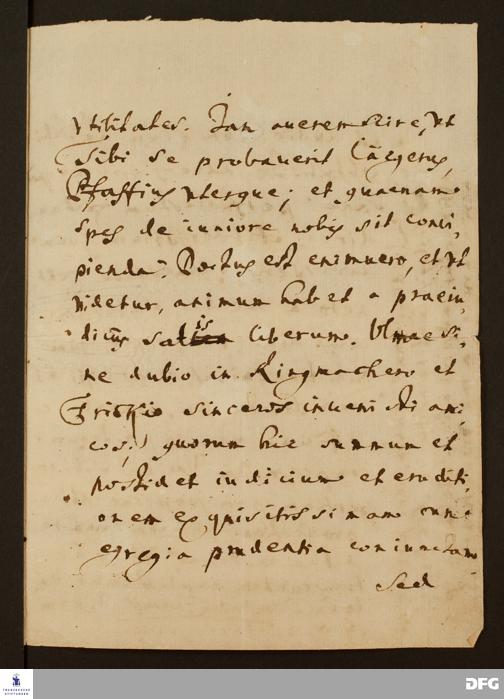 vtilitates. Jam auerem scire, vt
Tibi se probauerit Caegerus,
Pfaffius vterque; et quaenam
spes de iuniore nobis sit conci,
pienda. Doctus est enimuero, et vt
videtur, animum habet a praeiu,
diciis satis liberum. Ulmae si,
ne dubio in Ringmachero et
Frickio sinceros inuenisti ami,
cos; quorum hic summum et
possidet iudicium et eruditi,
onem exquisitissimam cum
egregia prudentia coniunctam
Sed
FRANCKESCHE
STIFTUNGEN
DFG